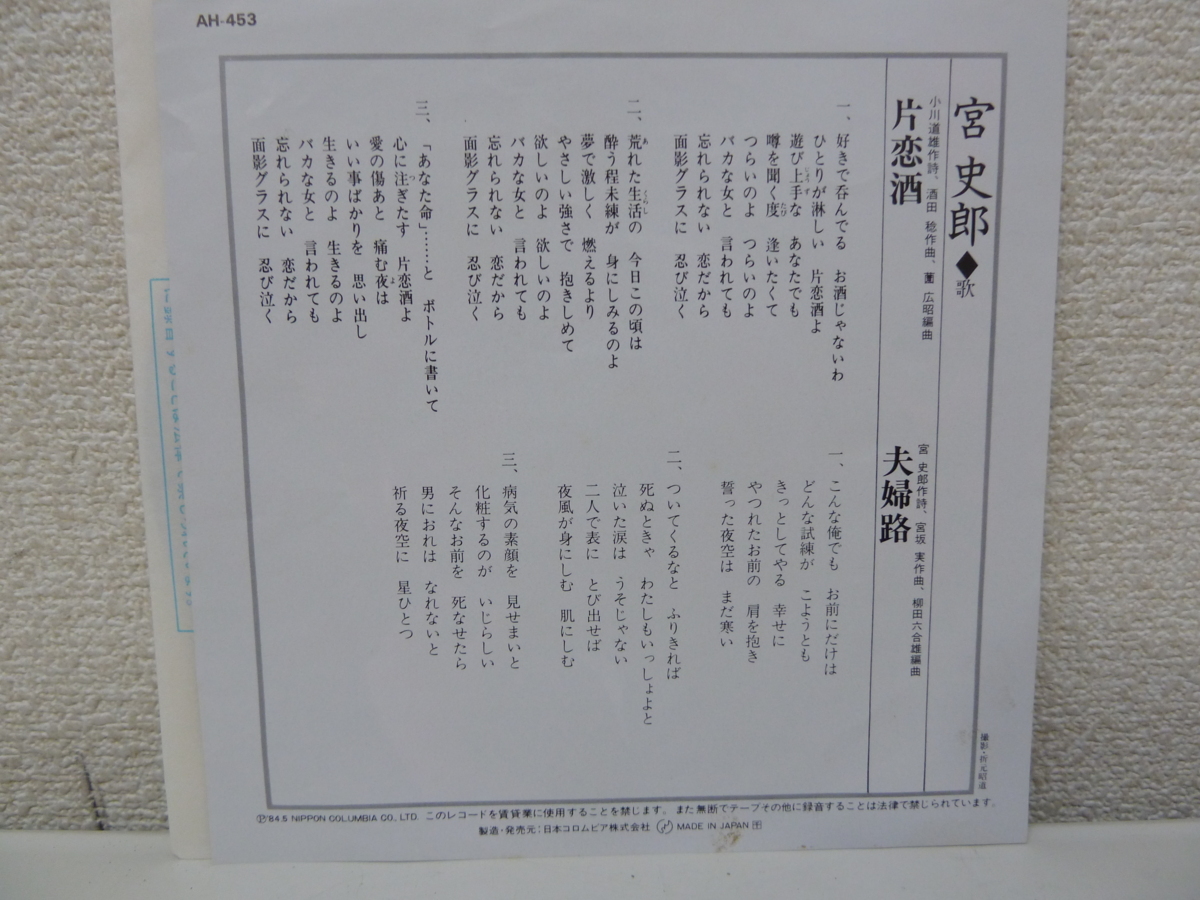 AH-453
宮 史郎◆歌
片恋酒
小川道雄作詩、酒田 稔作曲、薗 広昭編曲
一、好きで呑んでる お酒じゃないわ
ひとりが淋しい 片恋酒よ
遊び上手な あなたでも
噂を聞く度 逢いたくて
つらいのよ つらいのよ
バカな女と 言われても
忘れられない 恋だから
面影グラスに 忍び泣く
二、荒れた生活の 今日この頃は
酔う程未練が 身にしみるのよ
夢で激しく 燃えるより
やさしい強さで 抱きしめて
欲しいのよ 欲しいのよ
バカな女と 言われても
忘れられない 恋だから
面影グラスに 忍び泣く
三、「あなた命」……と ボトルに書いて
心に注ぎたす 片恋酒よ
愛の傷あと 痛む夜は
いい事ばかりを 思い出し
生きるのよ 生きるのよ
バカな女と 言われても
忘れられない 恋だから
面影グラスに 忍び泣く
夫婦路
宮 史郎作詩、宮坂 実作曲、柳田六合雄編曲
一、こんな俺でも お前にだけは
どんな試練が こようとも
きっとしてやる 幸せに
やつれたお前の 肩を抱き
誓った夜空は まだ寒い
二、ついてくるなと ふりきれば
死ぬときゃ わたしもいっしょよと
泣いた涙は うそじゃない
二人で表に とび出せば
夜風が身にしむ 肌にしむ
三、病気の素顔を 見せまいと
化粧するのが いじらしい
そんなお前を 死なせたら
男におれは なれないと
祈る夜空に 星ひとつ
撮影・祈元昭道
Ⓟ'84.5 NIPPON COLUMBIA CO., LTD. このレコードを賃貸業に使用することを禁じます。また無断でテープその他に録音することは法律で禁じられています。
製造・発売元：日本コロムビア株式会社 MADE IN JAPAN